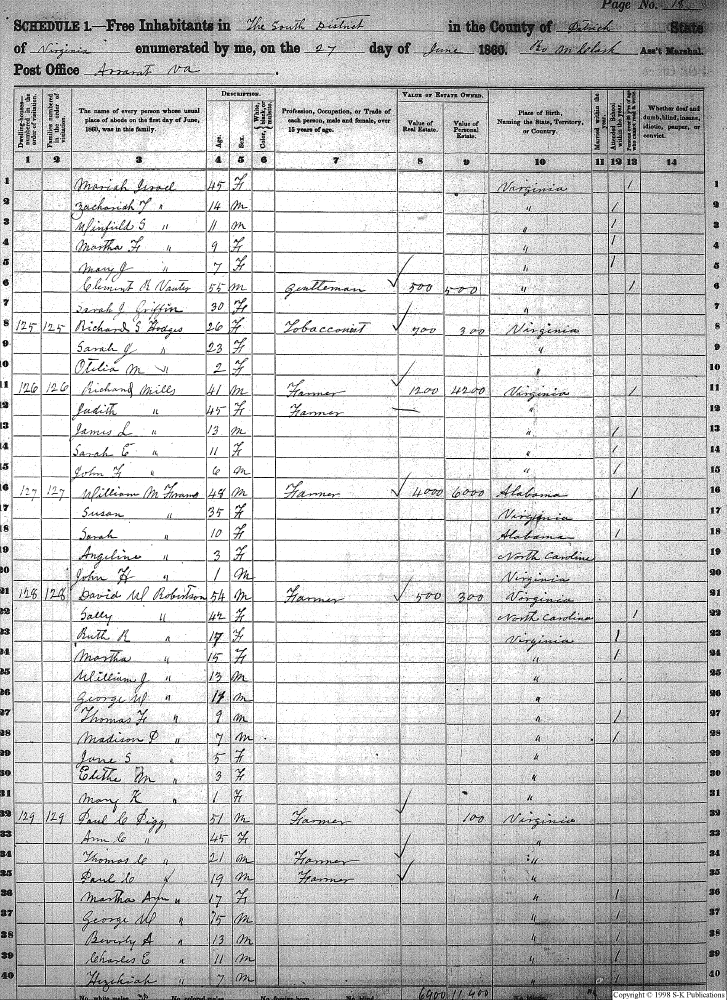 Page No. 18
SCHEDULE 1.—Free Inhabitants in The South District in the County of Patrick State
of Virginia enumerated by me, on the 27 day of June 1860. Ass't Marshal.
Post Office Ararat Va.
DESCRIPTION. VALUE OF ESTATE OWNED.
Dwelling-houses—numbered in the order of visitation. Families numbered in the order of visitation. The name of every person whose usual place of abode on the first day of June, 1860, was in this family. Age. Sex. Color, White, black, or mulatto. Profession, Occupation, or Trade of each person, male and female, over 15 years of age. Value of Real Estate. Value of Personal Estate. Place of Birth, Naming the State, Territory, or Country. Married within the year. Attended School within the year. Whether deaf and dumb, blind, insane, idiotic, pauper, or convict.
1 2 3 4 5 6 7 8 9 10 11 12 13 14
1 Mariah Israel 45 F Virginia / 1
2 Zachariah T " 14 M " / 2
3 Winfield S " 11 M " / 3
4 Martha F " 9 F " / 4
5 Mary J " 7 F " / 5
6 Clement R 55 M Gentleman 500 500 " / 6
7 Sarah J Griffin 30 F " 7
8 125 125 Richard S Hodges 26 F Tobacconist 700 300 Virginia 8
9 Sarah J " 23 F " 9
10 Otelia M " 2 F " 10
11 126 126 Richard Mills 41 M Farmer 1200 4200 Virginia / 11
12 Judith " 45 F Farmer — " 12
13 James L " 13 M " / 13
14 Sarah E " 11 F " / 14
15 John F " 6 M " / 15
16 127 127 William M Frans 48 M Farmer 4000 6000 Alabama / 16
17 Susan " 35 F Virginia 17
18 Sarah " 10 F Alabama / 18
19 Angeline " 3 F North Carolina 19
20 John H " 1 M Virginia 20
21 128 128 David W Robertson 54 M Farmer 500 300 Virginia 21
22 Sally " 42 F North Carolina / 22
23 Ruth R " 17 F Virginia / 23
24 Martha " 15 F " / 24
25 William J " 13 M " 25
26 George W " 11 M " 26
27 Thomas F " 9 M " / 27
28 Madison P " 7 M " / 28
29 June S " 5 F " 29
30 Edithe M " 3 F " 30
31 Mary K " 1 F " 31
32 129 129 Paul C Pigg 51 M Farmer 100 Virginia 32
33 Ann C " 45 F " 33
34 Thomas C " 21 M Farmer " 34
35 Paul C " 19 M Farmer " 35
36 Martha Ann " 17 F " / 36
37 George W " 15 M " / 37
38 Beverly A " 13 M " / 38
39 Charles E " 11 M " / 39
40 Hezekiah " 7 M " / 40
No. white males No. colored males No. foreign born No. blind 6900 11,400
Copyright © 1998 S-K Publications